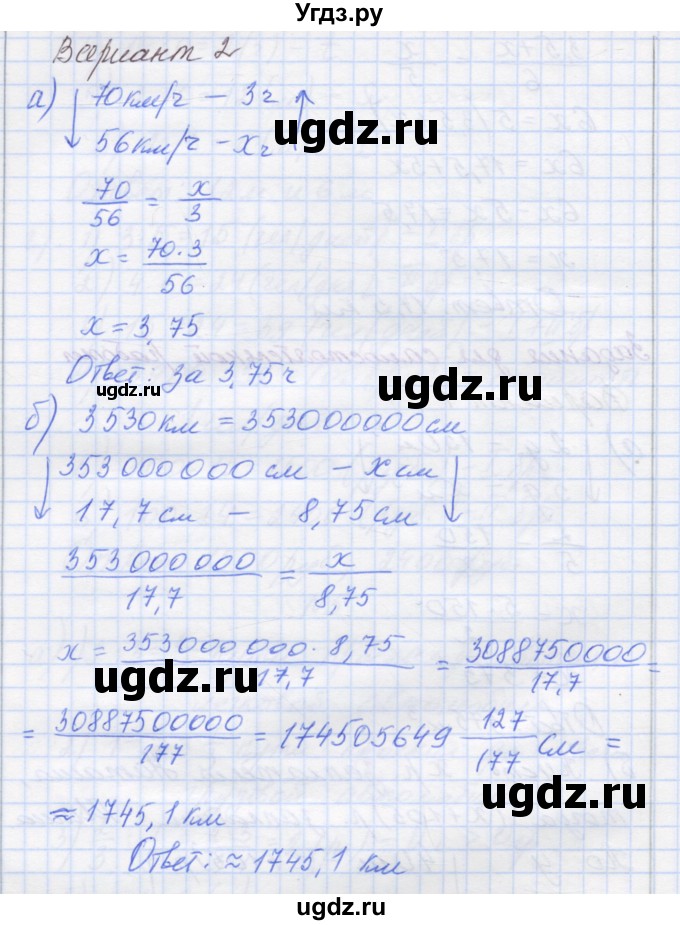 Угдз.ру
Вариант 2
а) ↓ 70 км/ч – 3ч ↑
56 км/ч – xч
ugdz.ru
70/56 = x/3
x = 70·3/56
x = 3,75
ugdz.ru
Ответ: за 3,75ч
ugdz.ru
б) 3530 км = 353000000 см
ugdz.ru
↓ 353 000 000 см – x см ↓
17,7 см – 8,75 см
353 000 000/17,7 = x/8,75
x = 353 000 000·8,75/17,7 = 3088750000/17,7 =
ugdz.ru
= 30887500000/177 = 174505649 127/177 см =
ugdz.ru
≈ 1745,1 км
Ответ: ≈ 1745,1 км
ugdz.ru
ugdz.ru